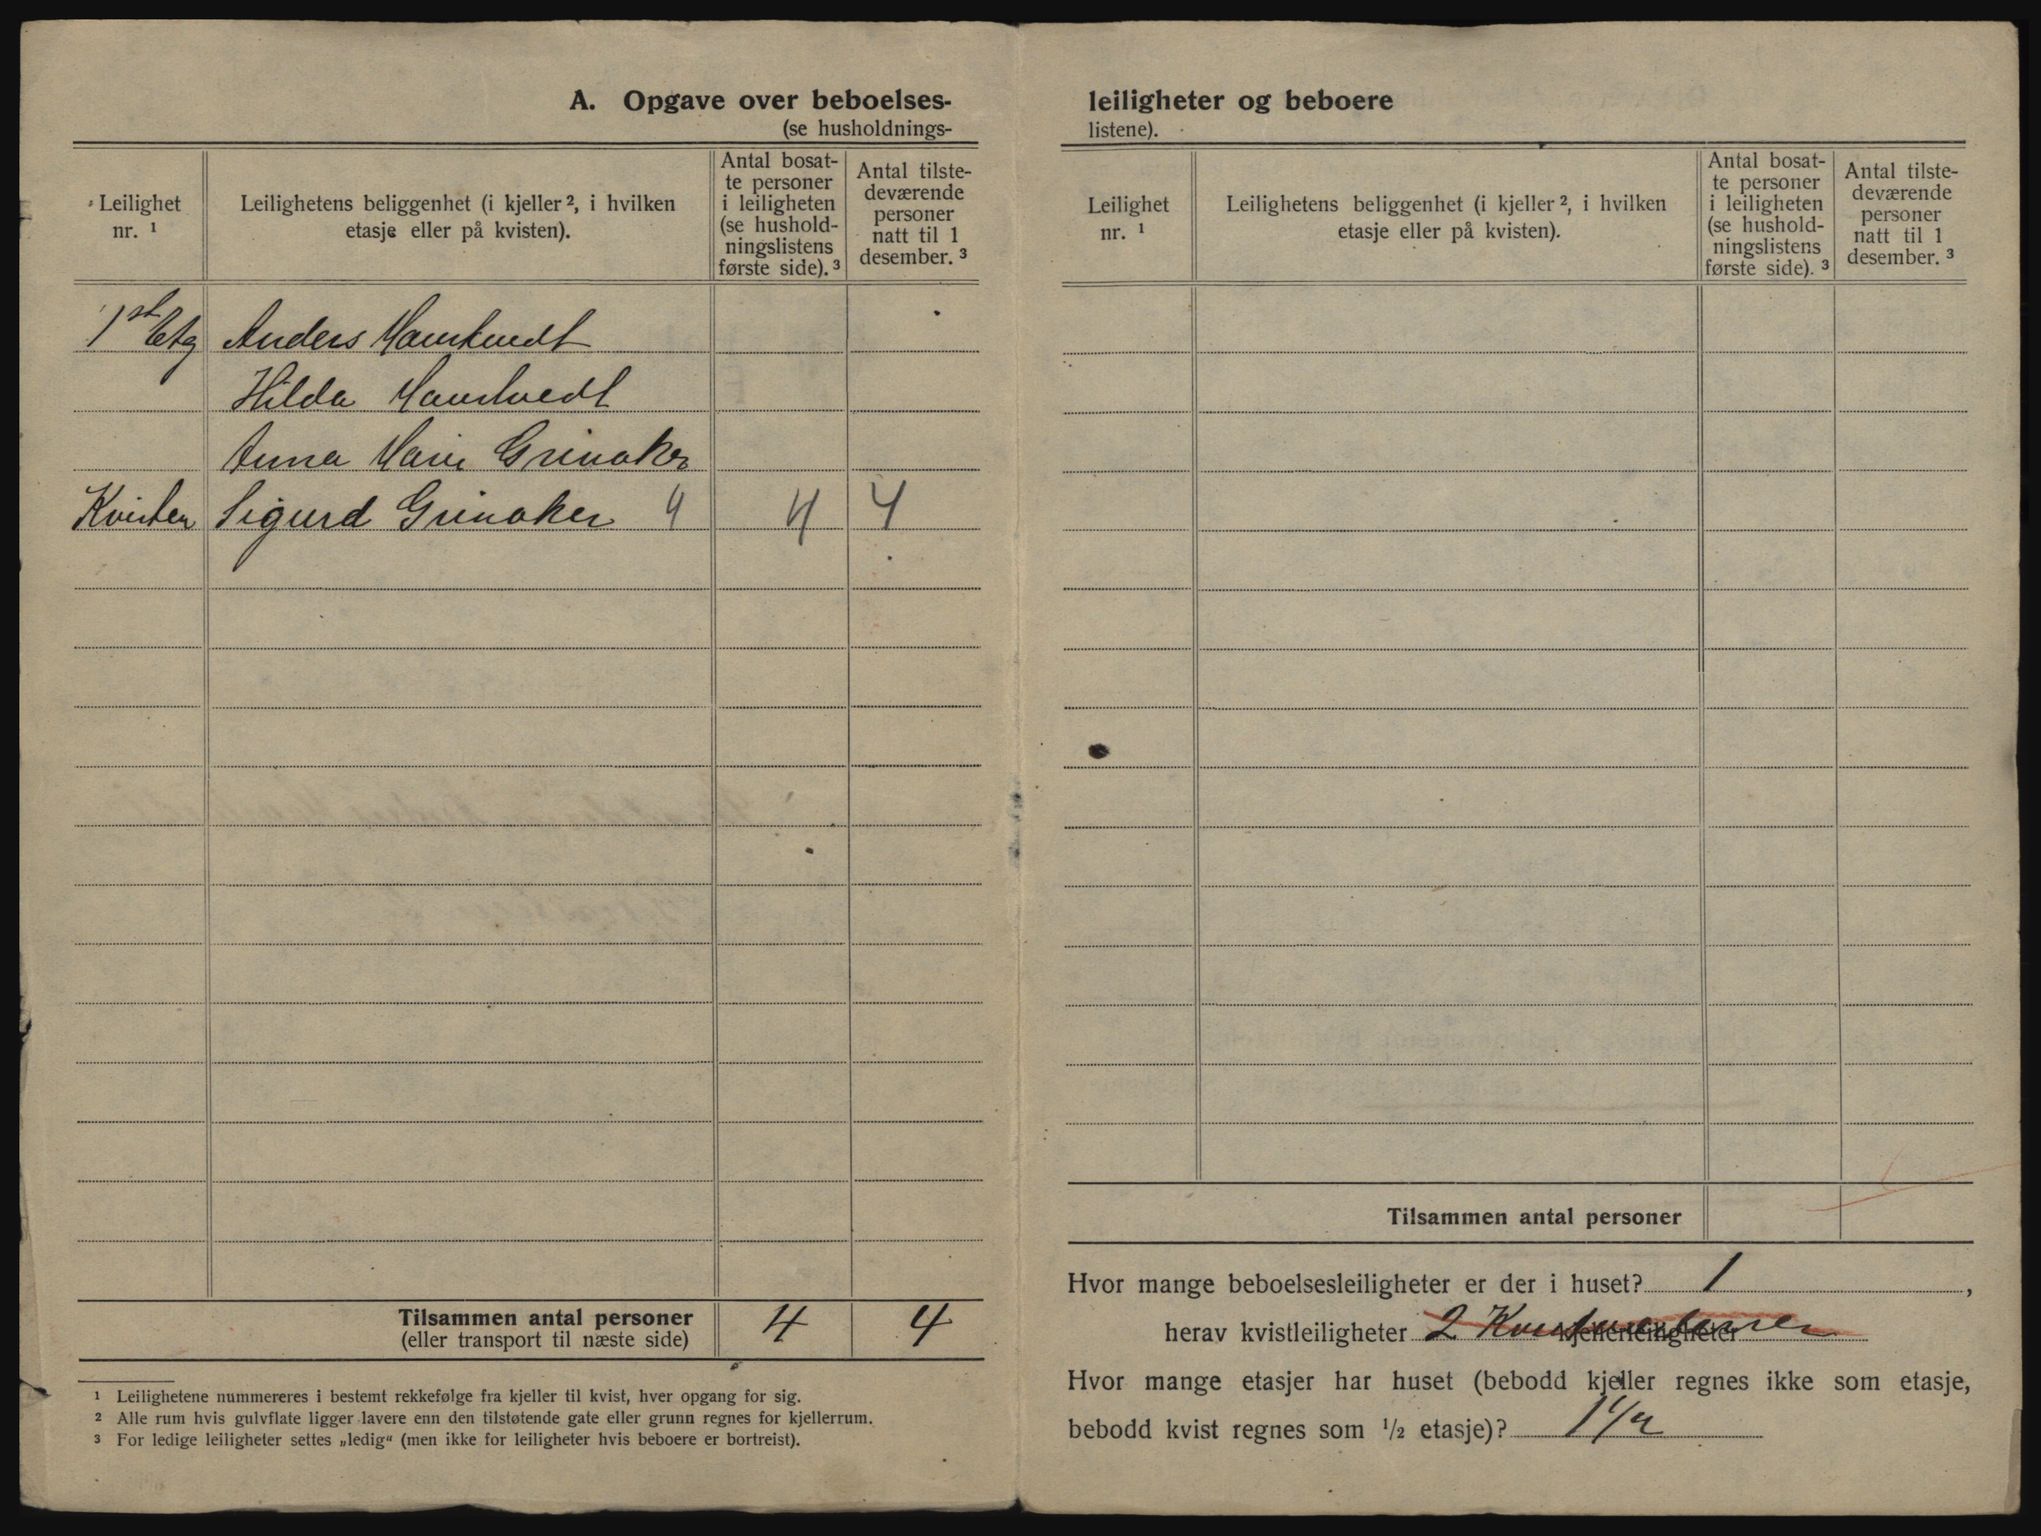 A. Opgave over beboelses-
(se husholdnings-
Leilighet nr. ¹
Leilighetens beliggenhet (i kjeller ², i hvilken etasje eller på kvisten).
Antal bosat-
te personer
i leiligheten
(se hushold-
ningslistens
første side). ³
Antal tilste-
deværende
personer
natt til 1
desember. ³
1st Etg Anders Hamstvedt
Hilda Hamstvedt
Anna Marie Grinaker
Kvisten Sigurd Grinaker 4 4 4
Tilsammen antal personer 4 4
(eller transport til næste side)
¹ Leilighetene nummereres i bestemt rekkefølge fra kjeller til kvist, hver opgang for sig.
² Alle rum hvis gulvflate ligger lavere enn den tilstøtende gate eller grunn regnes for kjellerrum.
³ For ledige leiligheter settes „ledig“ (men ikke for leiligheter hvis beboere er bortreist).
leiligheter og beboere
listene).
Leilighet nr. ¹
Leilighetens beliggenhet (i kjeller ², i hvilken etasje eller på kvisten).
Antal bosat-
te personer
i leiligheten
(se hushold-
ningslistens
første side). ³
Antal tilste-
deværende
personer
natt til 1
desember. ³
Tilsammen antal personer
Hvor mange beboelsesleiligheter er der i huset? 1 ,
herav kvistleiligheter 2 kjellerleiligheter
Hvor mange etasjer har huset (bebodd kjeller regnes ikke som etasje,
bebodd kvist regnes som ½ etasje)? 1 1/2